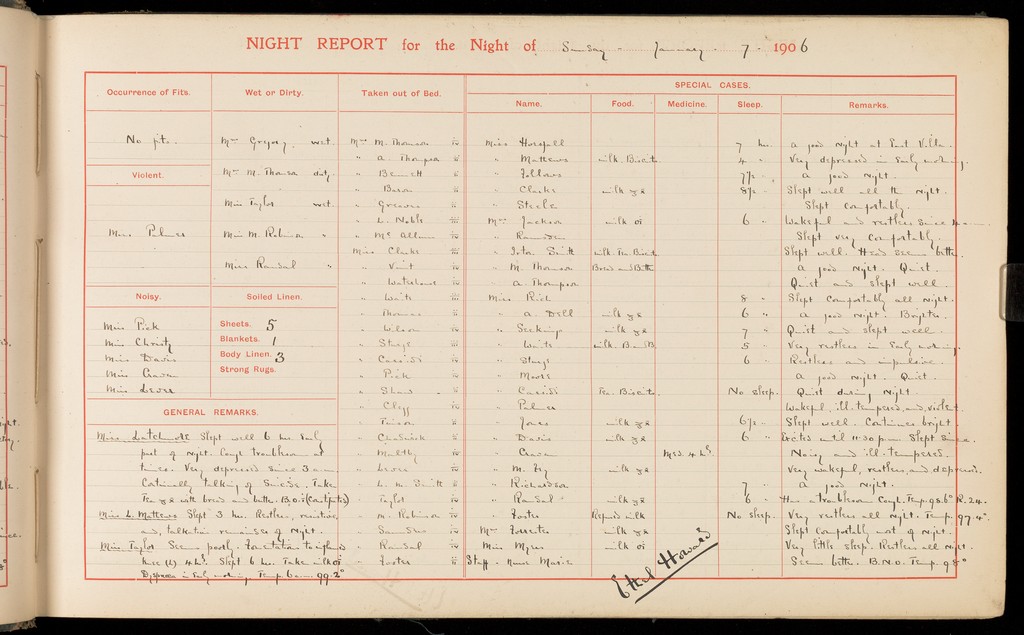 NIGHT REPORT for the Night of Sunday - January - 7 - 1906
Occurrence of Fits.
No fits.
Violent.
Miss Palmer
Noisy.
Miss Pick
Miss Christy
Miss Davis
Miss Craven
Miss Lever
Wet or Dirty.
Mrs Gregory. wet.
Mrs M. Thomson dirty.
Miss Taylor wet.
Miss M. Robinson "
Miss Randal "
Soiled Linen.
Sheets. 5
Blankets. 1
Body Linen. 3
Strong Rugs.
GENERAL REMARKS.
Miss Latchmore Slept well 6 hrs. Early
part of night. Cough troublesome at
times. Very depressed since 3 a.m.
Continually talking of Suicide. Take
Tea with bread and butter. B.O.
Miss L. Mattews Slept 3 hrs. Restless, resistive
and, talkative remainder of night.
Miss Taylor Seems poorly. Fomentation to right
knee 4 hrs. Slept 6 hrs. Take milk
in Early morning Temp. 6 a.m. 99.2°
Taken out of Bed.
Mrs M. Thomson iv
" A. Thompson ii
" Bennett ii
" Baron ii
" Greaves ii
" L. Noble iiii
" Mc Allum iv
Miss Clarke iii
" Vint iv
" Waterhouse iv
" Waits iii
" Thomas ii
" Wilson iv
" Sturge iii
" Cassidi iv
" Pick iv
" Shaw ii
" Clegg iv
" ii
" Chadwick ii
" ii
" Lever iv
" L. M. Smith ii
" Taylor iv
" M. Robinson iv
" iv
" Randal ii
" Foster iv
SPECIAL CASES.
Name. Food. Medicine. Sleep. Remarks.
Miss Horsfall 7 hrs. A good night at East Villa.
" Mattews milk. Biscuits 4 " Very depressed in Early morning.
" Follows 7½ " A good night.
" Clarke milk 8½ " Slept well all the night.
" Steele Slept comfortably.
Mrs Jackson milk 6 " Wakeful and restless since
" Ramsden Slept very comfortably.
" Smith milk Tea Biscuits Slept well. Head seems better.
" M. Thomson Bread and Butter A good night. Quiet.
" A. Thompson Quiet and slept well.
Miss Rich 8 " Slept comfortably all night.
" A. Dell milk 6 " A good night. Brighter.
" Seeking milk 7 " Quiet and slept well.
" Waits milk. B and B. 5 " Very restless in Early morning.
" Sturge 6 " Restless and impulsive.
" Moore A good night. Quiet.
" Cassidi Tea. Biscuits No sleep. Quiet during night.
" Palmer Wakeful, ill-tempered, and, violent.
" Jones milk 6½ " Slept well. Continues bright.
" Davis milk 6 " Excited until 11-30 p.m. Slept since.
" Craven Med. 4 hrs. Noisy and ill-tempered.
" M. Fry milk Very wakeful, restless, and, depressed.
" Richardson 7 " A good night.
" Randal milk 6 " Has a troublesome Cough. Temp. 98.6° R. 24.
" Foster Refused milk No sleep. Very restless all night. Temp. 97.4°
Mrs Forrester milk Slept comfortably most of night.
Miss Myers milk Very little sleep. Restless all night.
Staff - Nurse Seems better. B.N.O. Temp. 98°
Ethel Howard